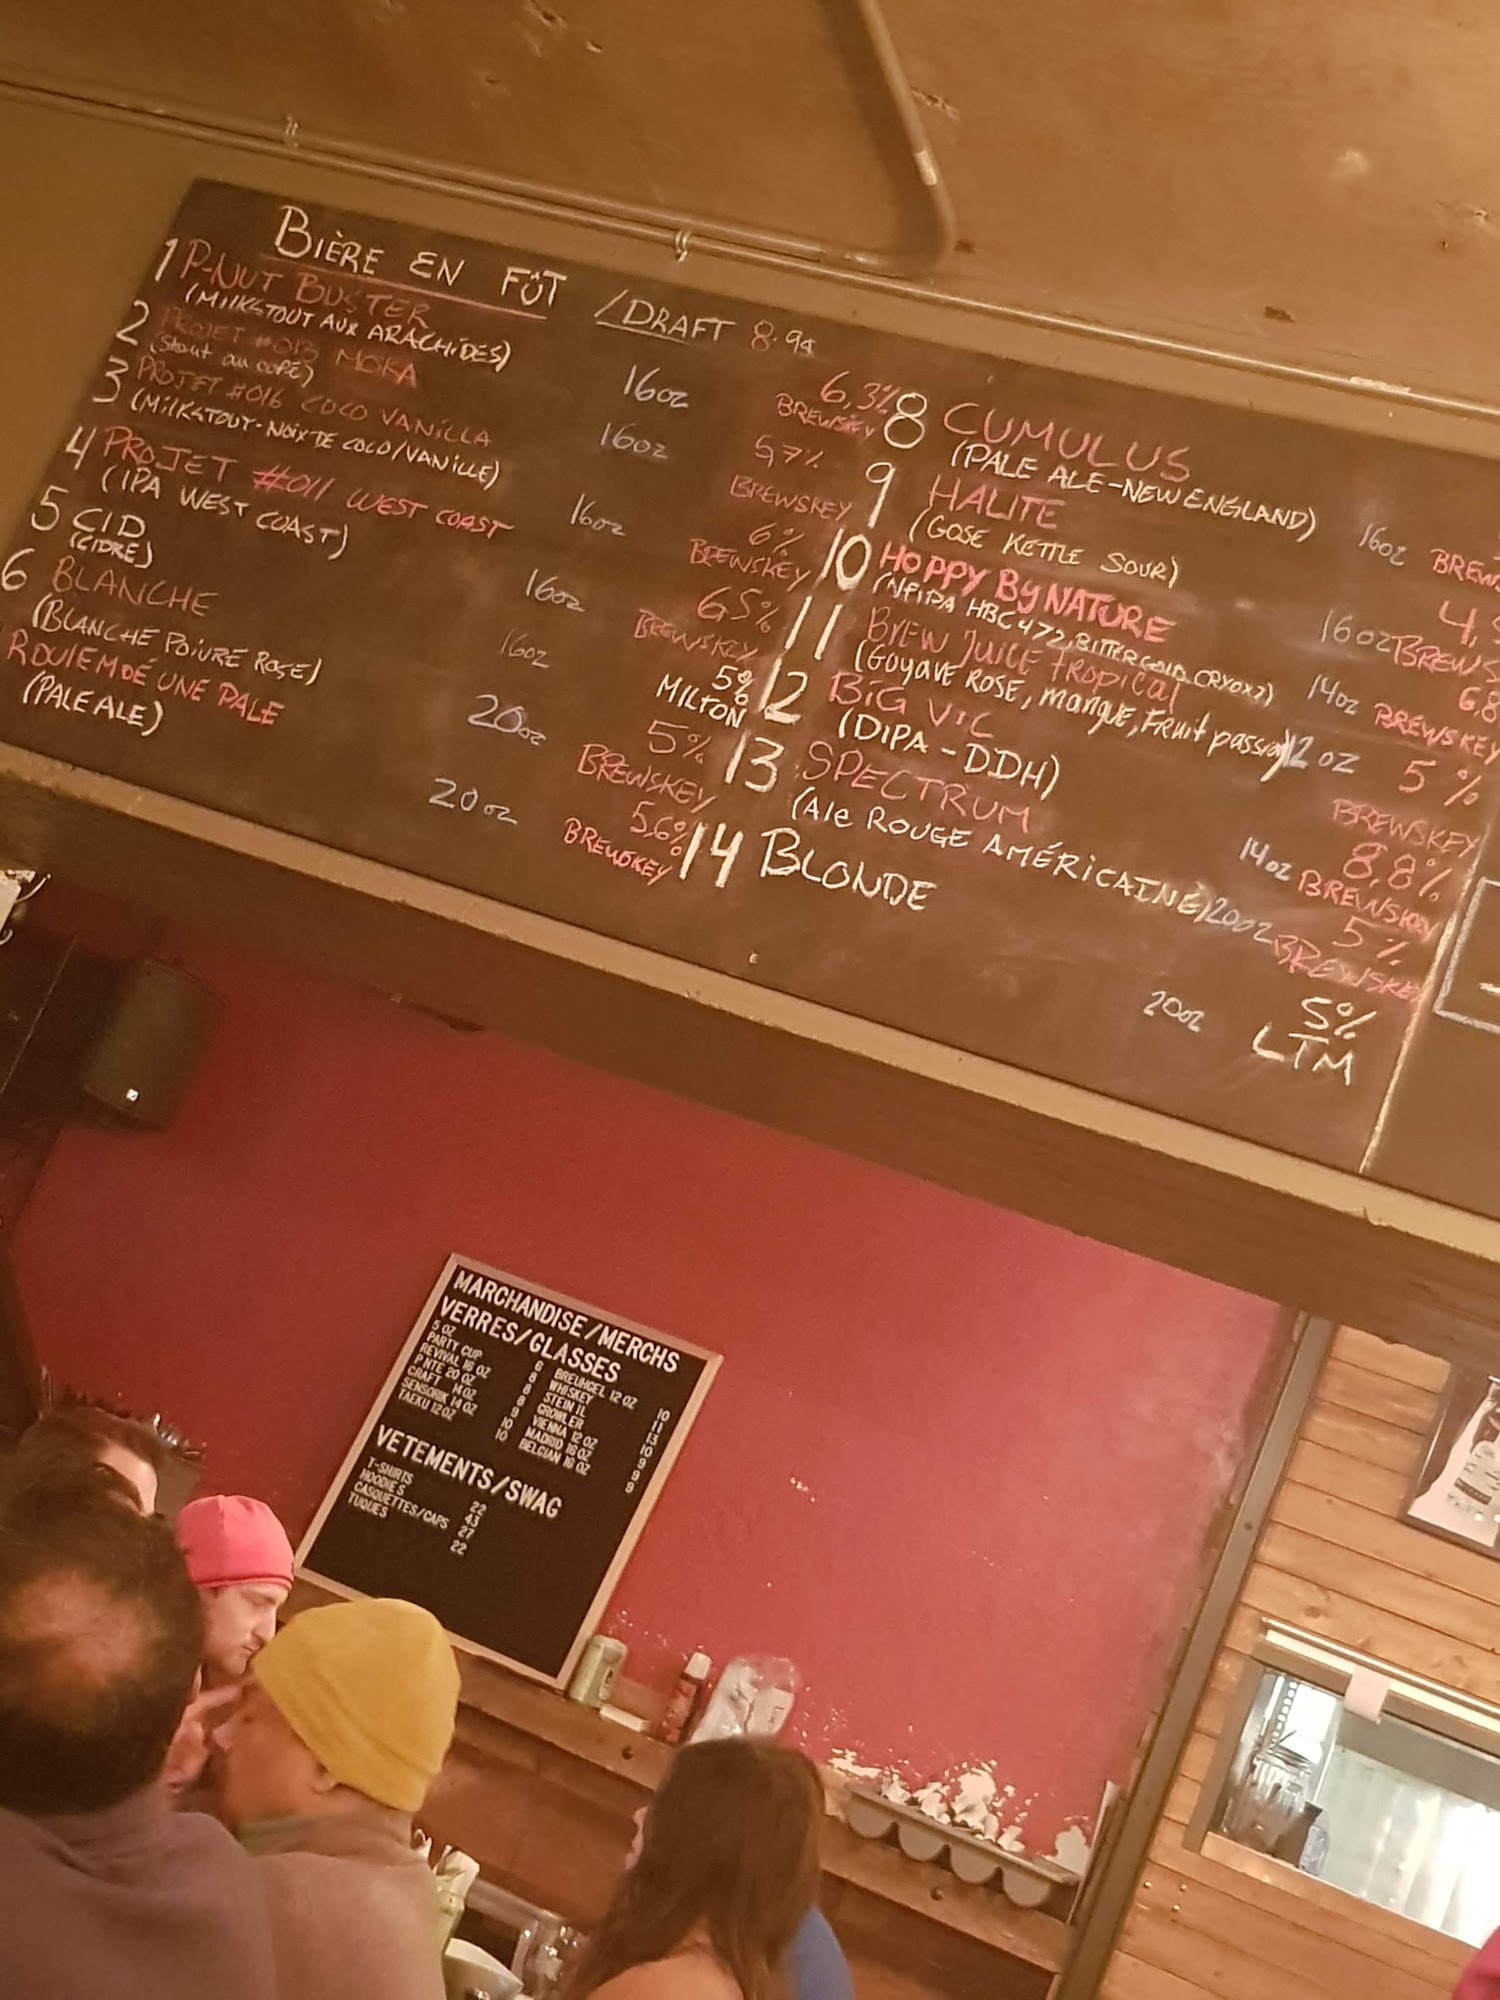 BIÈRE EN FÛT / DRAFT 8.99
1 P-NUT BUSTER 16oz 6,3%
(MILKSTOUT AUX ARACHIDES) BREWSKEY
2 PROJET #013 MOKA 16oz 5,7%
(Stout au café) BREWSKEY
3 PROJET #016 COCO VANILLA 16oz 6%
(MILKSTOUT-NOIX DE COCO/VANILLE) BREWSKEY
4 PROJET #011 WEST COAST 16oz 6,5%
(IPA WEST COAST) BREWSKEY
5 CID 16oz 5%
(CIDRE) MILTON
6 BLANCHE 20oz 5%
(BLANCHE POIVRE ROSE) BREWSKEY
ROULEMOÉ UNE PALE 20oz 5,6%
(PALE ALE) BREWSKEY
8 CUMULUS
(PALE ALE-NEW ENGLAND) 16oz
9 HALITE
(GOSE KETTLE SOUR) 16oz
10 HOPPY BY NATURE
(NEIPA HBC 472, BITTERGOLD, CRYOX7) 14oz BREWSKEY
11 BREW JUICE tropical 5%
(GOYAVE ROSE, mangue, Fruit passion) 12oz BREWSKEY
12 BIG VIC 8,8%
(DIPA-DDH) 14oz BREWSKEY
13 SPECTRUM 5%
(Ale ROUGE AMÉRICAINE) 20oz BREWSKEY
14 BLONDE 20oz 5%
LTM
MARCHANDISE/MERCHS
VERRES/GLASSES
5 OZ 6
PARTY CUP 8
REVIVAL 16 OZ 8
PINTE 20 OZ 8
CRAFT 14OZ 9
SENSORIK 14 OZ 10
TAEKU 12OZ 10
BREUHGEL 12 OZ 10
WHISKEY 11
STEIN 1L 13
GROWLER 10
VIENNA 12 OZ 9
MADRID 16 OZ 9
BELGIAN 16 OZ 9
VETEMENTS/SWAG
T-SHIRTS 22
HOODIES 43
CASQUETTES/CAPS 27
TUQUES 22